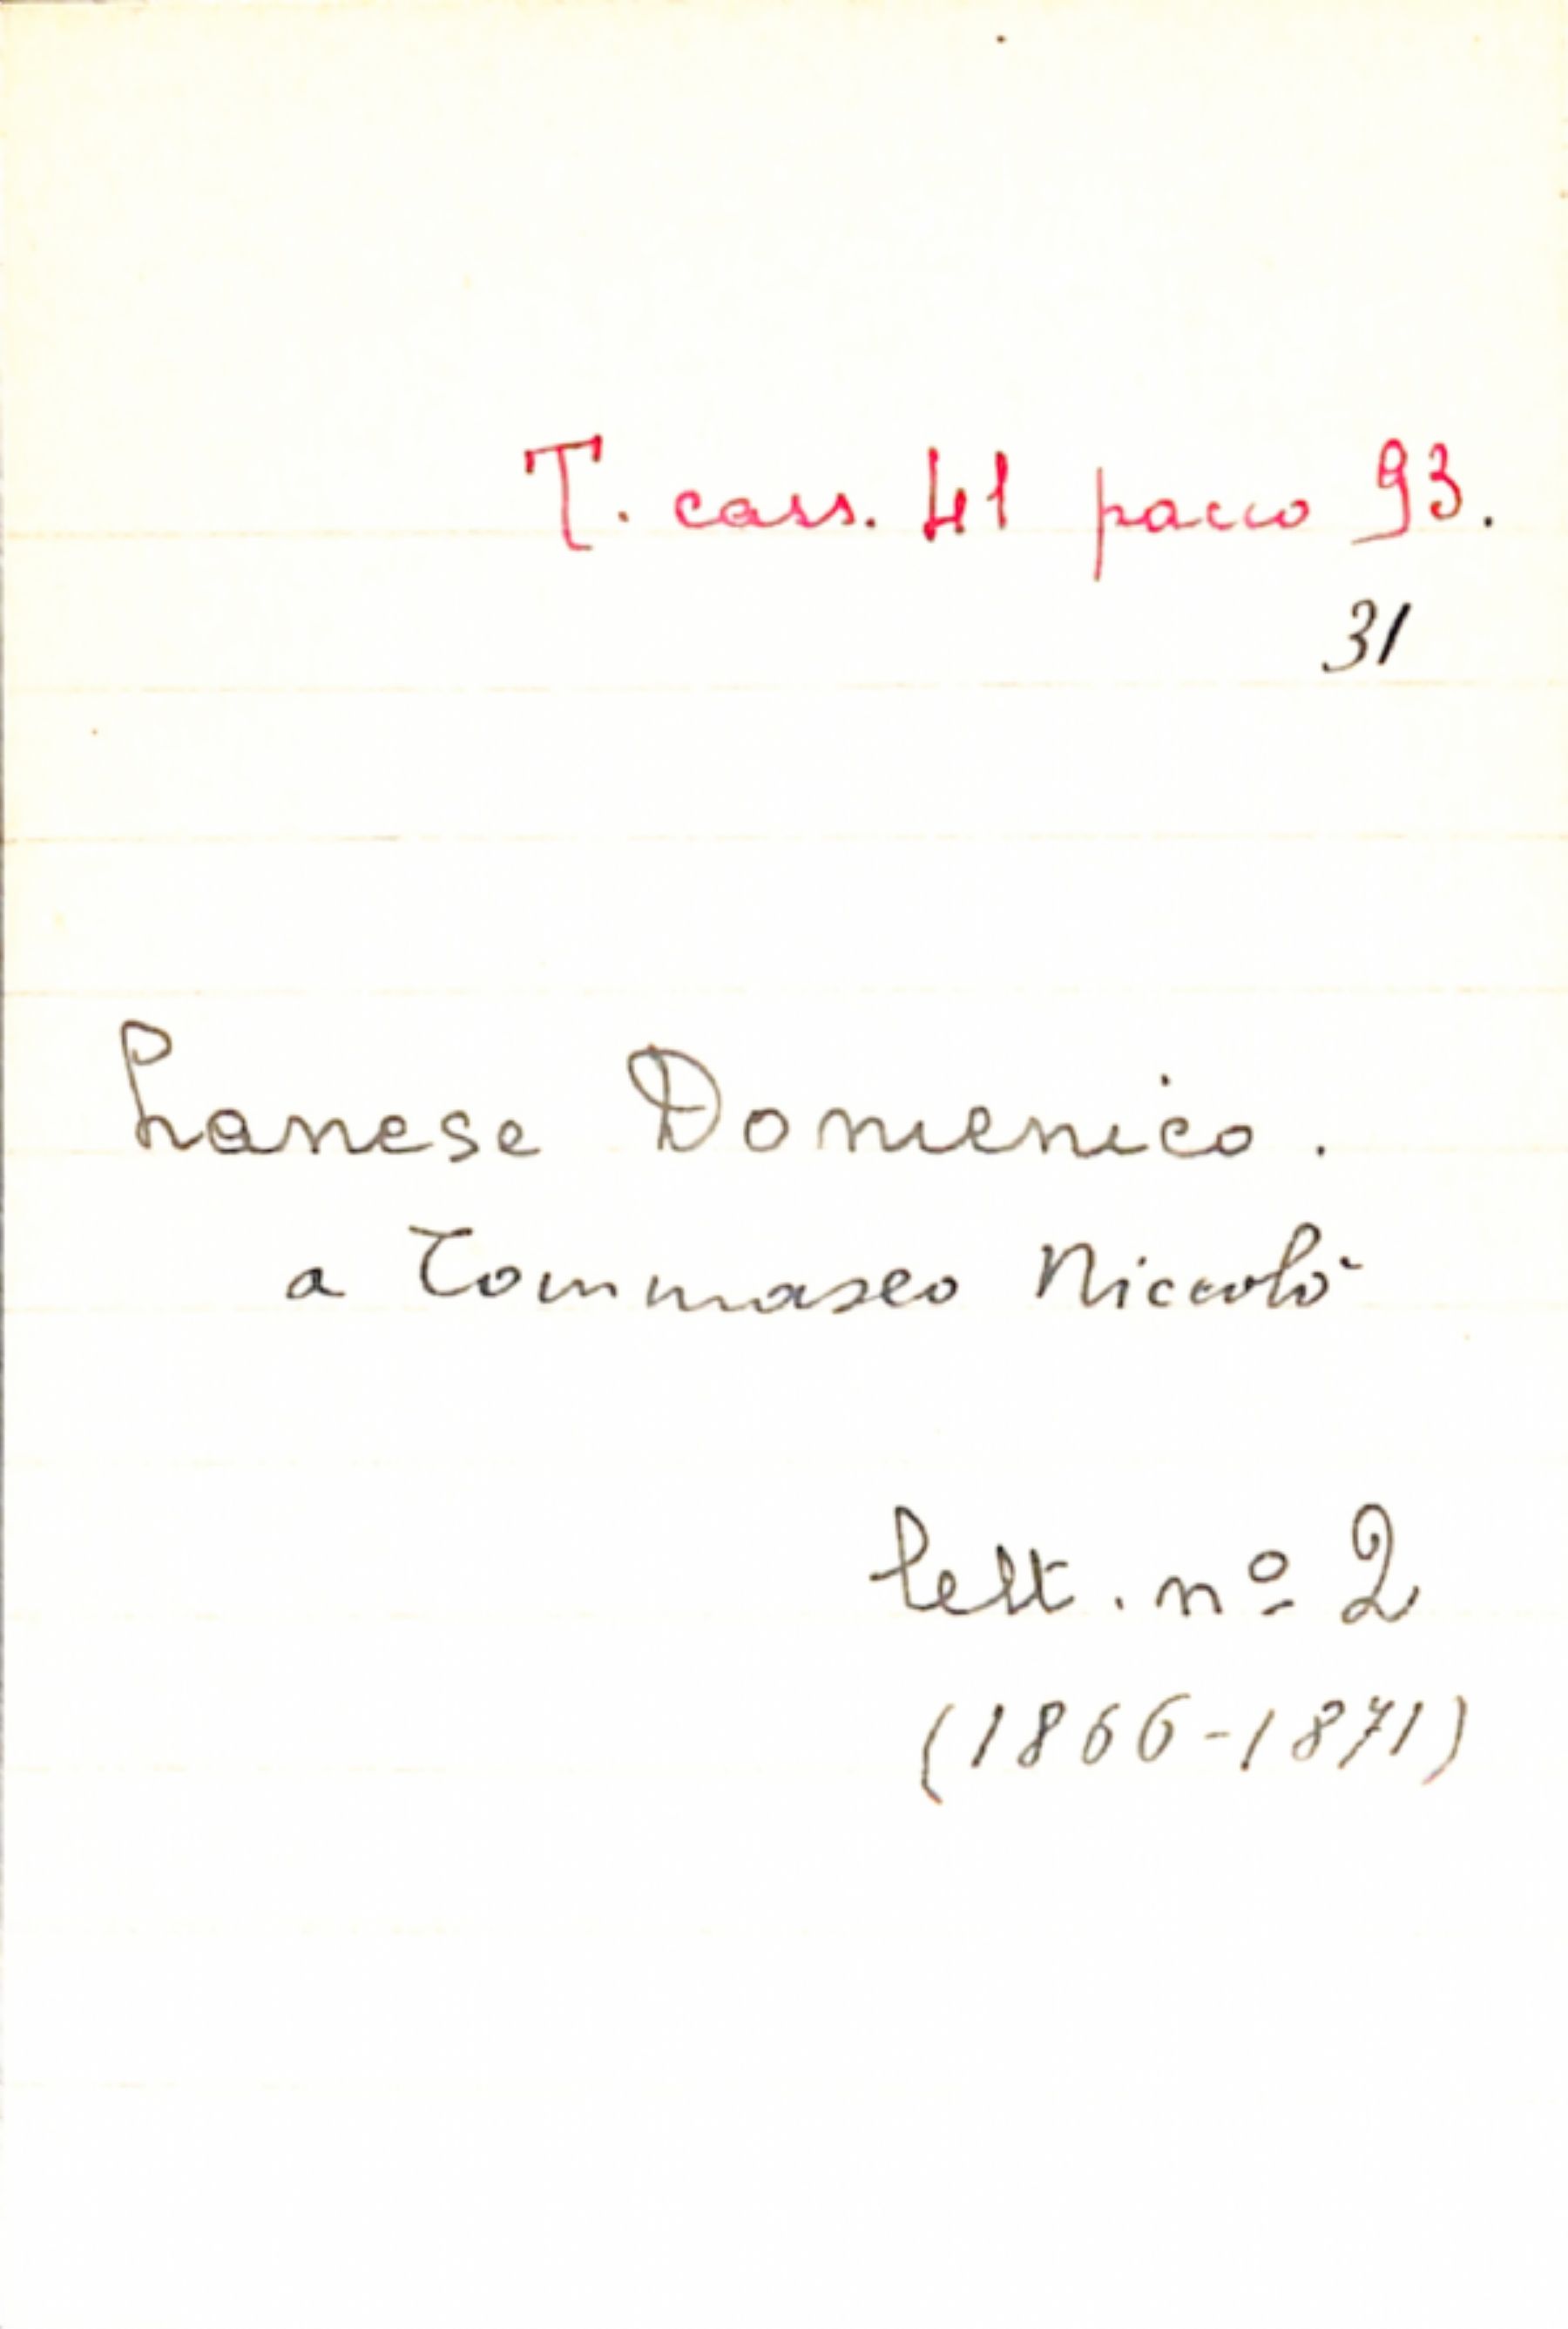 T. cass. 41 pacco 93.
31
Lanese Domenico.
a Tommaseo Niccolò
lett. nº 2
(1866-1871)